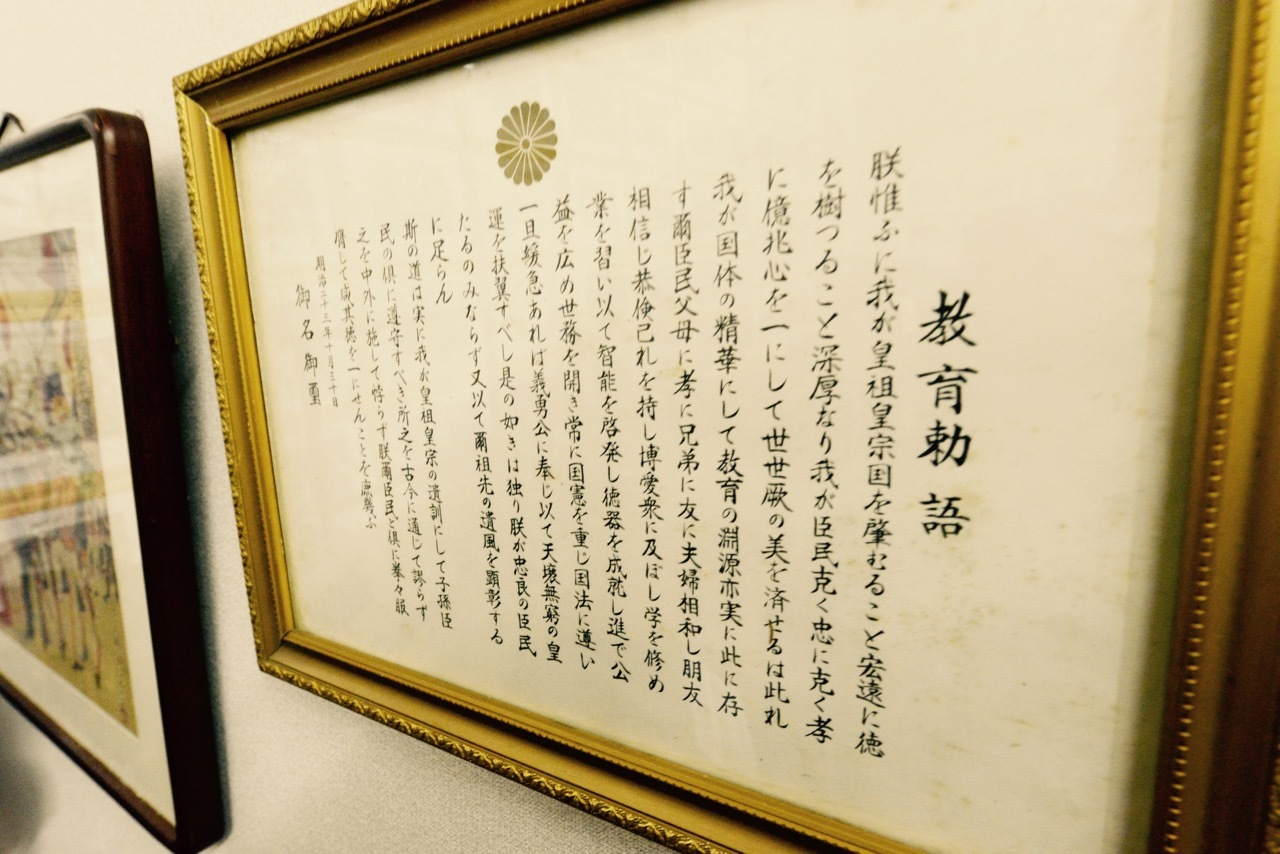 教育勅語
朕惟ふに我が皇祖皇宗国を肇むること宏遠に徳
を樹つること深厚なり我が臣民克く忠に克く孝
に億兆心を一にして世世厥の美を済せるは此れ
我が国体の精華にして教育の淵源亦実に此に存
す爾臣民父母に孝に兄弟に友に夫婦相和し朋友
相信じ恭倹己れを持し博愛衆に及ぼし学を修め
業を習い以て智能を啓発し徳器を成就し進で公
益を広め世務を開き常に国憲を重じ国法に遵い
一旦緩急あれば義勇公に奉じ以て天壌無窮の皇
運を扶翼すべし是の如きは独り朕が忠良の臣民
たるのみならず又以て爾祖先の遺風を顕彰する
に足らん
斯の道は実に我が皇祖皇宗の遺訓にして子孫臣
民の倶に遵守すべき所之を古今に通じて謬らず
之を中外に施して悖らず朕爾臣民と倶に拳々服
膺して咸其徳を一にせんことを庶幾ふ
明治二十三年十月三十日
御名御璽